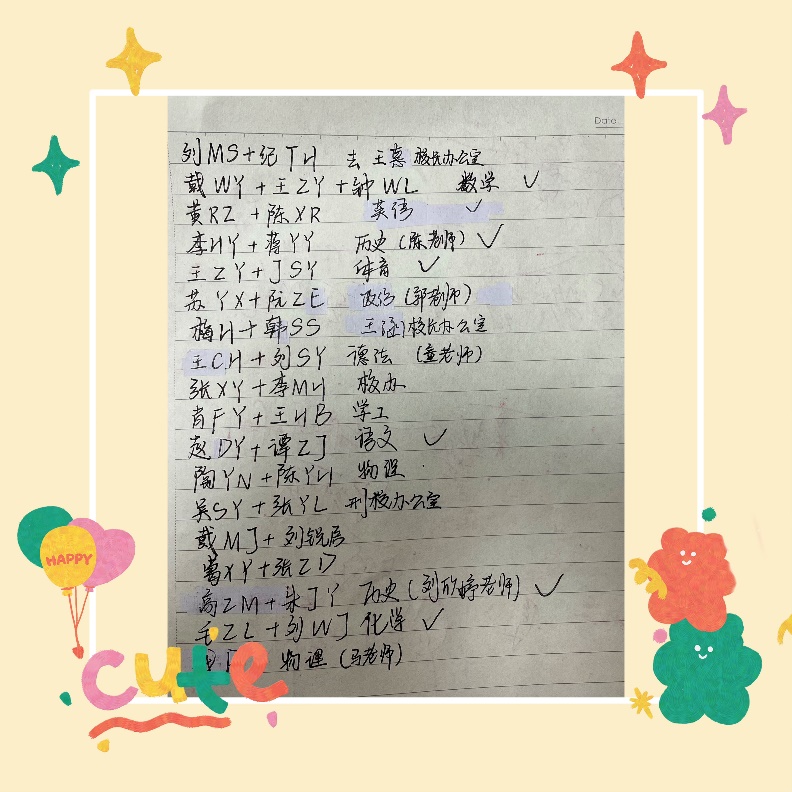 Date
列MS+纪TH 去王惠校长办公室
戴WY+王ZY+钟WL 数学 ✓
黄RZ+陈XR 英语 ✓
李HY+蒋YY 历史(陈老师) ✓
王ZY+JSY 体育 ✓
苏YX+阮ZE 政治(郭老师)
梅H+韩SS 王涵校长办公室
王CH+列SY 德法(童老师)
张XY+李MH 校办
肖FY+王HB 学工
赵DY+谭ZJ 语文 ✓
陶YN+陈YH 物理
吴SY+张YL 刑校办公室
戴MJ+列锐
XY+张ZD
高ZM+朱JY 历史(列欣婷老师) ✓
毛ZL+列WJ 化学 ✓
物理(马老师)
HAPPY
cute